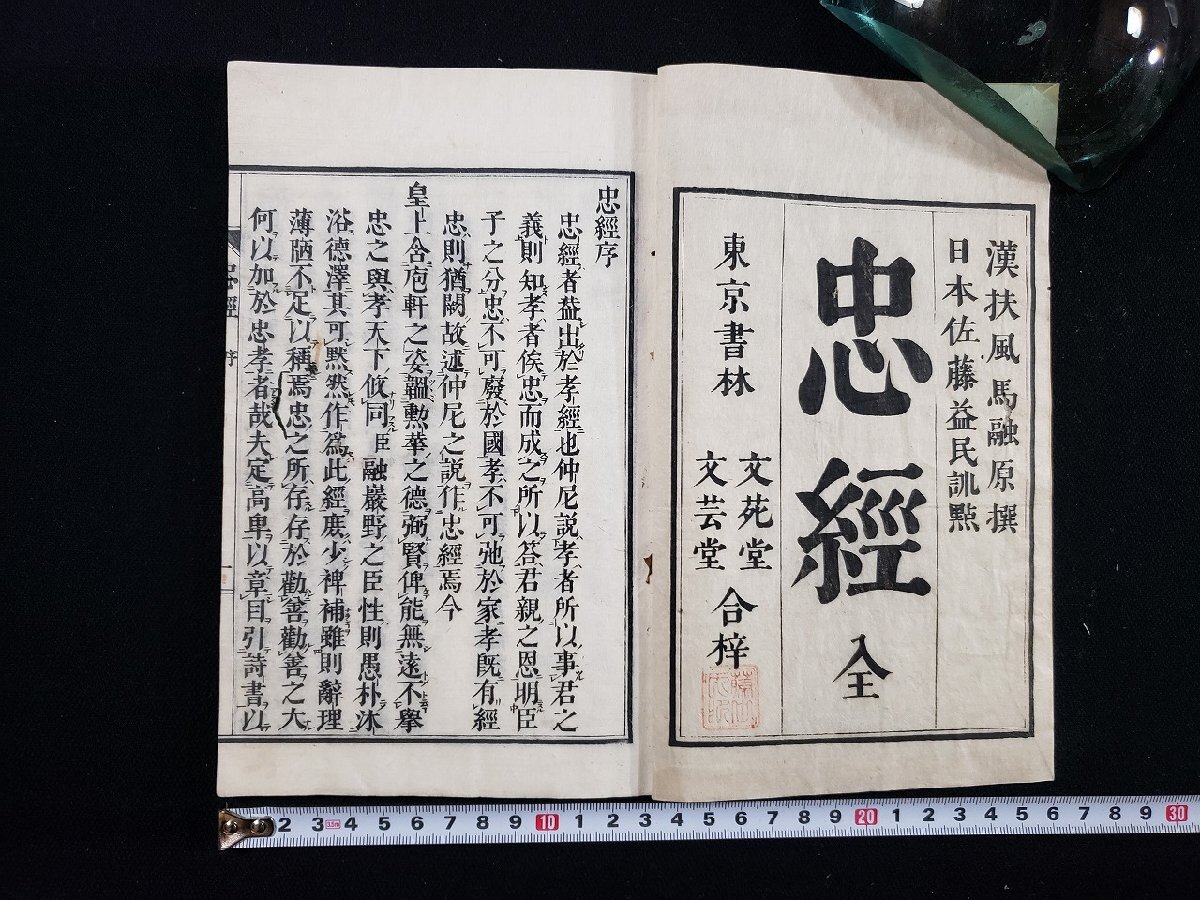 漢扶風馬融原撰
日本佐藤益民訓點
忠經全
東京書林
文苑堂
文芸堂
合梓
忠經序
忠經者蓋出於孝經也仲尼説孝者所以事君之
義則知孝者俟忠而成之所以荅君親之恩明臣
子之分忠不可廢於國孝不可弛於家孝既有經
忠則猶闕故述仲尼之説作忠經焉今
皇上含庖軒之姿韞勲華之德弼賢俾能無遠不擧
忠之與孝天下攸同臣融巖野之臣性則愚朴沐
浴德澤其可黙然作爲此經庶少裨補雖則辭理
薄陋不足以稱焉忠之所存存於勸善勸善之大
何以加於忠孝者哉夫定高卑以章目引詩書以
忠經
序
一
2 3 3.5㎝ 4 5 6 7 8 9 10 1 2 3 4 5 6 7 8 9 20 1 2 3 4 5 6 7 8 9 30